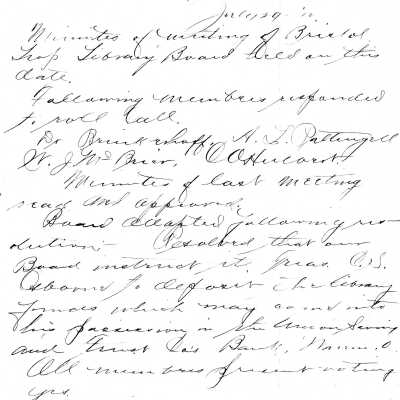 July 29
Minutes of meeting of Bristol
Twp Library Board held on this
date.
Following members responded
to roll call.
Dr Brinkerhoff, A. L. Pattengell
W. J. McBrier, C O Hulbert
Minutes of last meeting
read and approved.
Board adopted following re-
solution:- Resolved that our
Board instruct it Treas. C. S.
Osborne to deposit the library
funds which may come into
his possession in the Union Savings
and Trust Co's Bank, Warren, O.
All members present voting
yes.